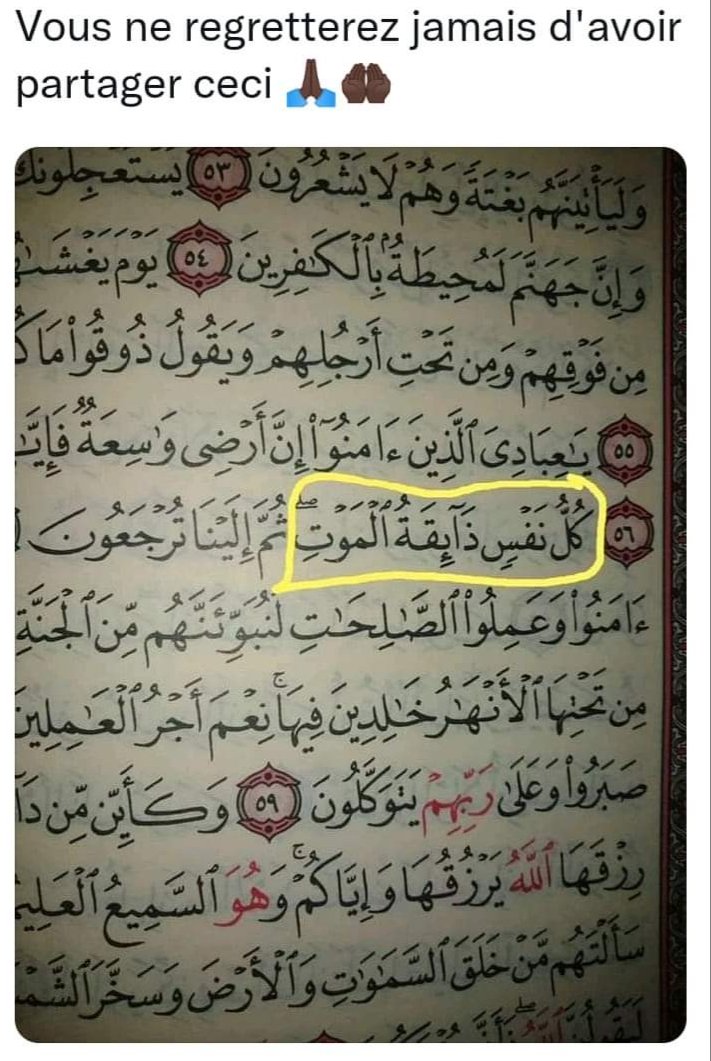 Vous ne regretterez jamais d'avoir
partager ceci 🙏🏿🤲🏿
وَلَيَأْتِيَنَّهُم بَغْتَةً وَهُمْ لَا يَشْعُرُونَ ٥٣ يَسْتَعْجِلُونَكَ
وَإِنَّ جَهَنَّمَ لَمُحِيطَةٌۢ بِٱلْكَٰفِرِينَ ٥٤ يَوْمَ
مِن فَوْقِهِمْ وَمِن تَحْتِ أَرْجُلِهِمْ وَيَقُولُ ذُوقُوا۟ مَا
٥٥ يَٰعِبَادِىَ ٱلَّذِينَ ءَامَنُوٓا۟ إِنَّ أَرْضِى وَٰسِعَةٌ
٥٦ كُلُّ نَفْسٍ ذَآئِقَةُ ٱلْمَوْتِ ۖ ثُمَّ إِلَيْنَا تُرْجَعُونَ
ءَامَنُوا۟ وَعَمِلُوا۟ ٱلصَّٰلِحَٰتِ لَنُبَوِّئَنَّهُم مِّنَ ٱلْجَنَّةِ
مِن تَحْتِهَا ٱلْأَنْهَٰرُ خَٰلِدِينَ فِيهَا ۚ نِعْمَ أَجْرُ ٱلْعَٰمِلِينَ
صَبَرُوا۟ وَعَلَىٰ رَبِّهِمْ يَتَوَكَّلُونَ ٥٩ وَكَأَيِّن مِّن
رِزْقَهَا ٱللَّهُ يَرْزُقُهَا وَإِيَّاكُمْ ۚ وَهُوَ ٱلسَّمِيعُ ٱلْعَلِيمُ
سَأَلْتَهُم مَّنْ خَلَقَ ٱلسَّمَٰوَٰتِ وَٱلْأَرْضَ وَسَخَّرَ